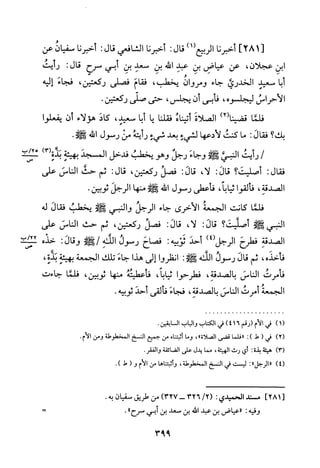 [٢٨١] أخبرنا الربيع(١) قال: أخبرنا الشافعي قال: أخبرنا سفيان عن
ابن عجلان، عن عياض بن عبد الله بن سعد بن أبي سرح قال: رأيتُ
أبا سعيد الخدريَّ جاء ومروان يخطب، فقام فصلى ركعتين، فجاء إليه
الأحراسُ ليجلسوه، فأبى أن يجلس، حتى صلَّى ركعتين.
فلمَّا قضينا(٢) الصلاةَ أتيناهُ فقلنا يا أبا سعيد، كادَ هؤلاءِ أن يفعلوا
بك؟ فقال: ما كنتُ لأدعها لشيءٍ بعد شيءٍ رأيتهُ من رسول الله ﷺ.
/ رأيتُ النبيَّ ﷺ وجاءَ رجلٌ وهو يخطبُ فدخل المسجدَ بهيئةٍ بَذَّةٍ(٣)
فقال: أصليتَ؟ قال: لا، قال: فصلِّ ركعتين، ثم قال: ثم حثَّ الناسَ على
الصدقةِ، فألقَوا ثياباً، فأعطى رسول الله ﷺ منها الرجلَ ثوبينِ.
فلمَّا كانت الجمعةُ الأخرى جاء الرجلُ والنبي ﷺ يخطبُ فقال له
النبي ﷺ أصلَّيتَ؟ قال: لا، قال: فصلِّ ركعتينِ، ثم حث الناسَ على
الصدقةِ فطرحَ الرجل(٤) أحدَ ثوبَيهِ: فصاحَ رسولُ اللَّه ﷺ/ وقال: خذه
فأخذه، ثم قالَ رسولُ اللَّهِ ﷺ: انظروا إلى هذا جاءَ تلك الجمعةَ بهيئةٍ بذَّةٍ،
فأمرتُ الناسَ بالصدقةِ، فطرحوا ثياباً، فأعطيتُهُ منها ثوبين، فلمَّا جاءت
الجمعةُ أمرتُ الناسَ بالصدقةِ، فجاءَ فألقى أحدَ ثوبيه.
(١) في الأم (رقم ٤١٦) في الكتاب والباب السابقين.
(٢) في (ط): «فلما قضى الصلاة»، وما أثبتناه من جميع النسخ المخطوطة ومن الأم.
(٣) هيئة بذة: أي رث الهيئة، مما يدل على الفاقة والفقر.
(٤) «الرجل»: ليست في النسخ المخطوطة، وأثبتناها من الأم و (ط).
[٢٨١] مسند الحميدي: (٢/ ٣٢٦ — ٣٢٧) من طريق سفيان به.
وفيه: «عياض بن عبد الله بن سعد بن أبي سرح».
=
٣٩٩